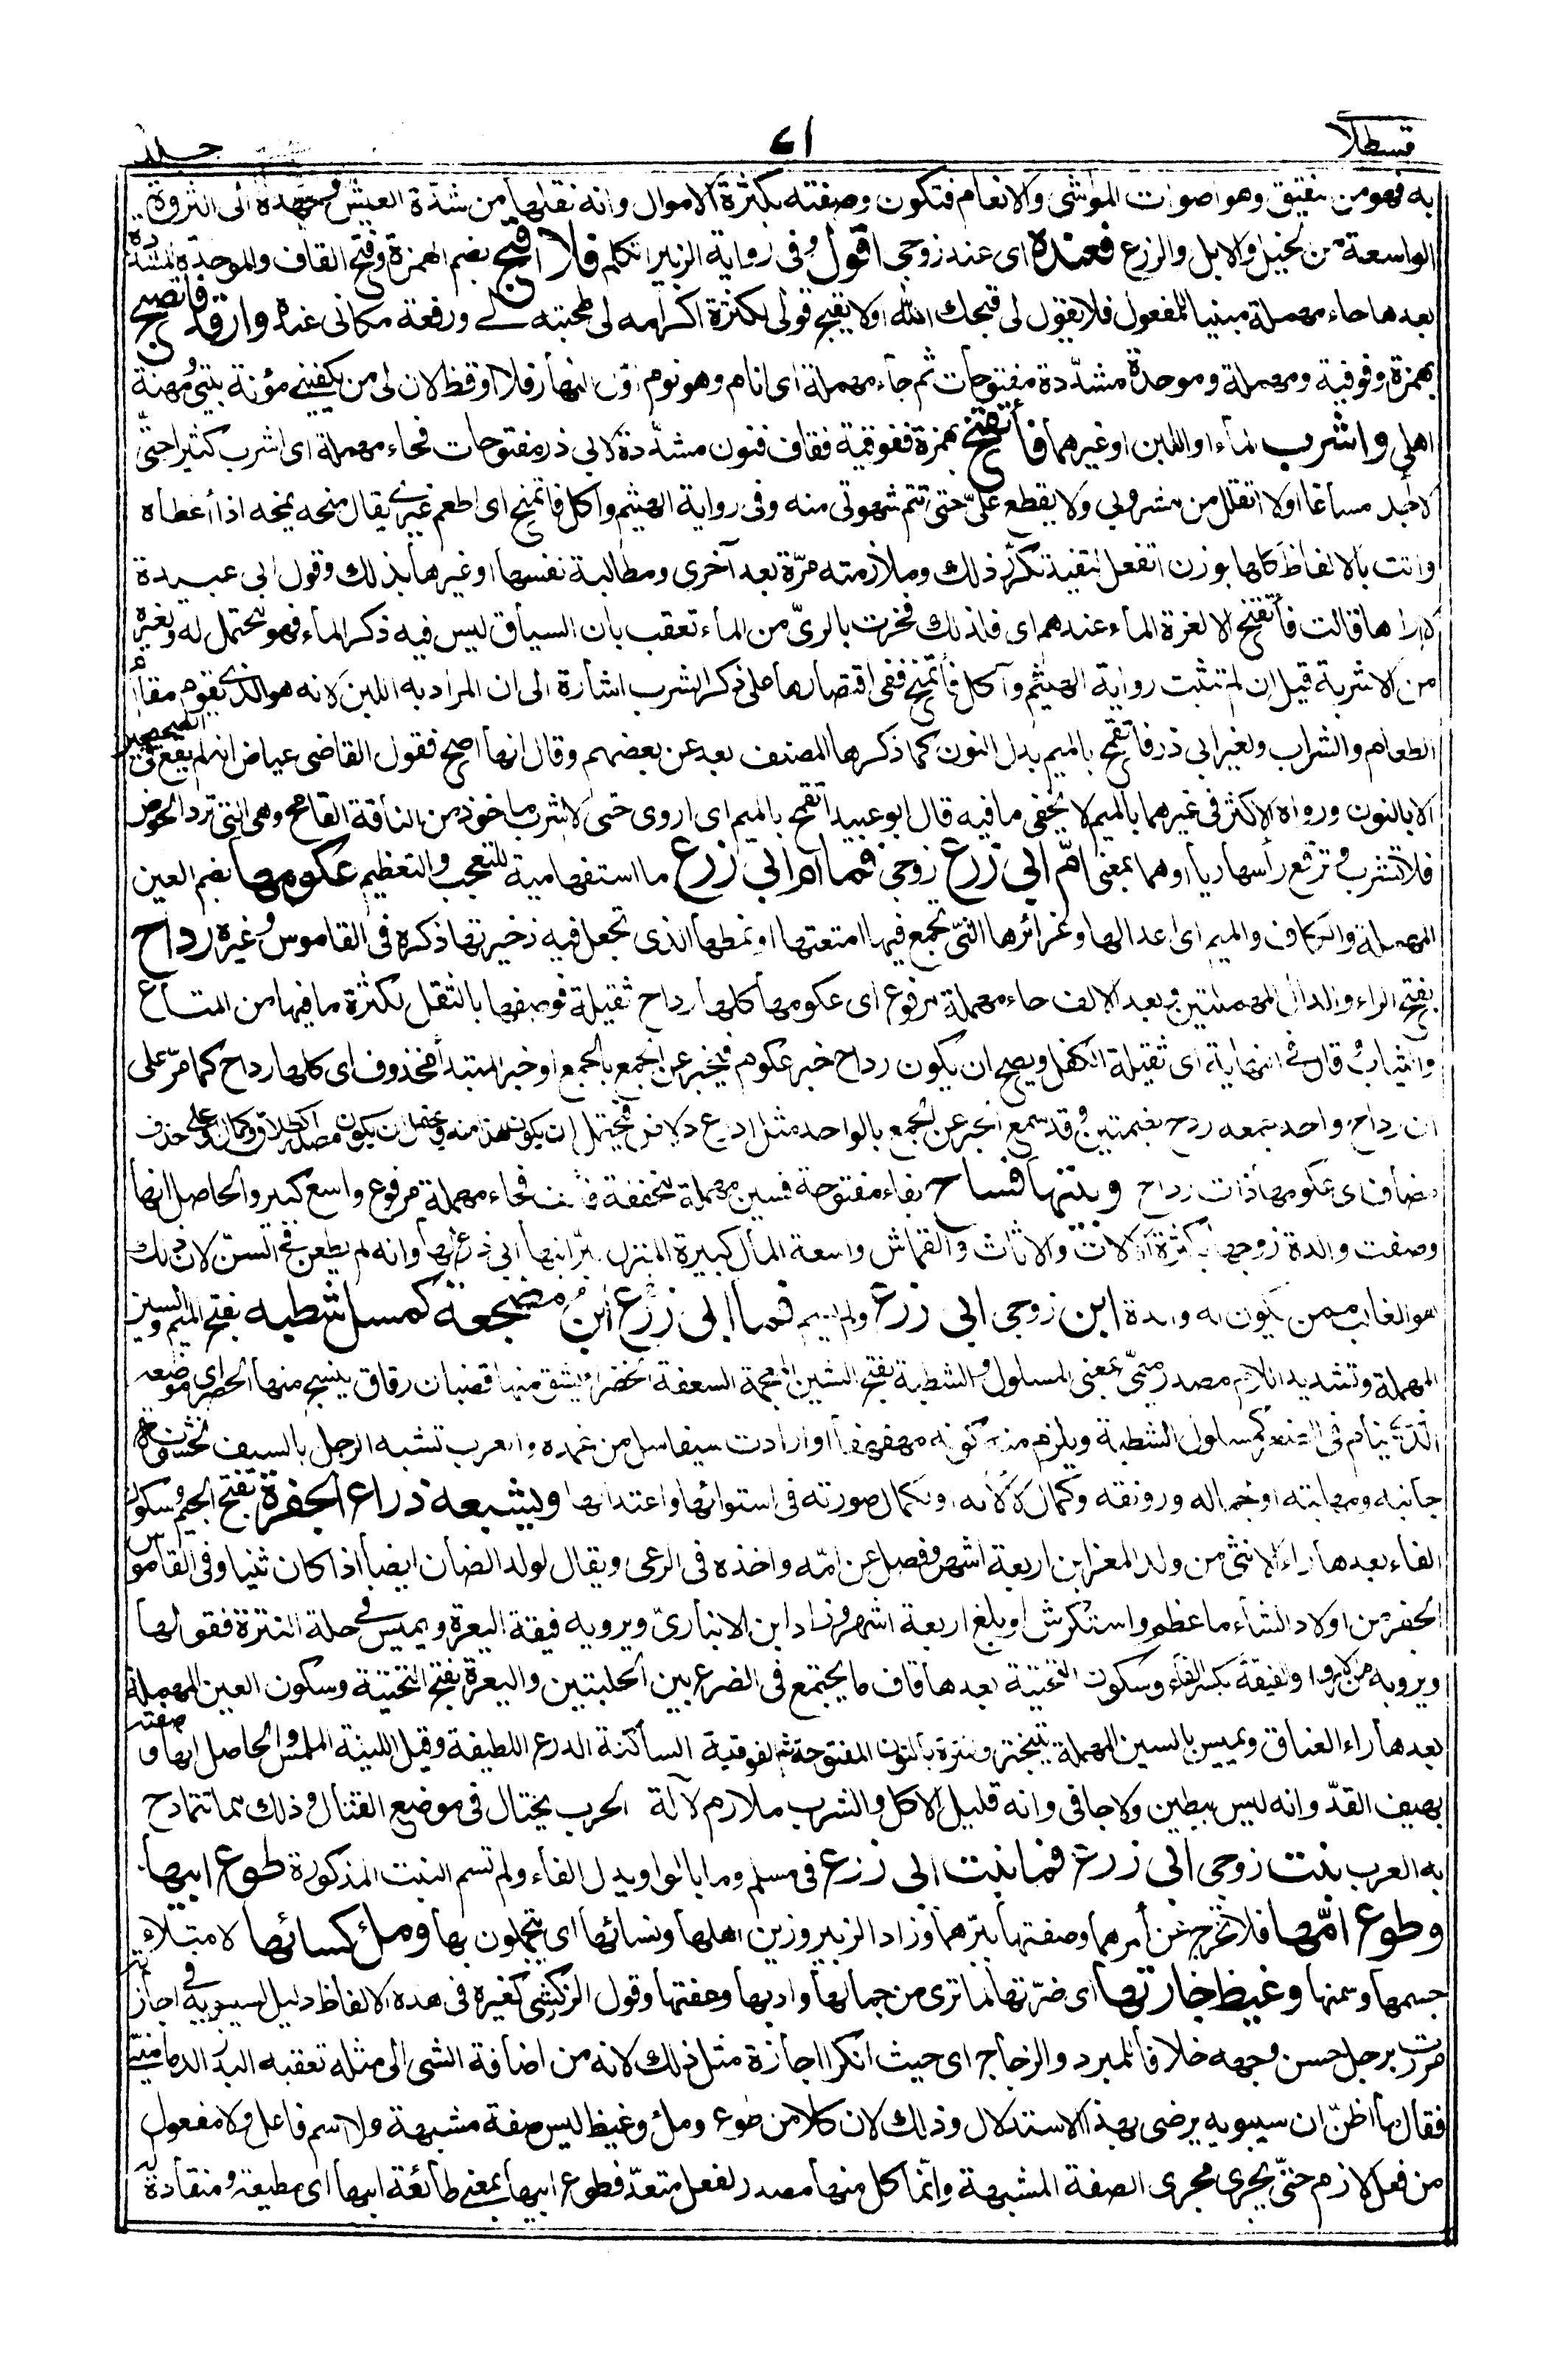 قسطلا
٤١
جلد
به فهو من نقيق وهو اصوات المواشى والانعام فتكون وصفته بكثرة الاموال وانه نقلها من شدّة العيش وجهده الى الثروة
الواسعة من الخيل والابل والزرع فعنده اى عند زوجى اقول وفى رواية الزبير اتكلم فلا اقبح بضم الهمزة وفتح القاف والموحدة المشددة
بعدها حاء مهملة مبنيا للمفعول فلا يقول لى قبحك الله اولا يقبح قولى لكثرة اكرامه لى لمحبته لى ورفعة مكانى عنده وارقد فاتصبح
بهمزة وفوقية ومهملة وموحدة مشدّدة مفتوحات ثم حاء مهملة اى انام وهو نوم اوّل النهار فلا اوقظ لان لى من يكفينى مؤنة بيتى ومهنة
اهلى واشرب الماء او اللبن او غيرهما فأتقنح بهمزة ففوقية فقاف فنون مشدّدة لابى ذر مفتوحات فحاء مهملة اى اشرب كثيرا حتى
لا اجد مساغا اولا اتقلل من مشروبى ولا يقطع علىّ حتى تتم شهوتى منه وفى رواية الهيثم واكل فاتمنح اى اطعم غيرى يقال منحه يمنحه اذا أعطاه
واتت بالالفاظ كلها بوزن اتفعل لتفيد تكرّر ذلك وملازمته مرّة بعد اخرى ومطالبة نفسها او غيرها بذلك وقول ابى عبيدة
لا اراها قالت فأتقنح الا لعزة الماء عندهم اى فلذلك فخرت بالرىّ من الماء تعقب بان السياق ليس فيه ذكر الماء فهو محتمل له ولغيره
من الاشربة قيل ان لم تثبت رواية الهيثم وآكل فأتمنح ففى اقتصارها على ذكر الشرب اشارة الى ان المراد به اللبن لانه هو الذى يقوم مقام
الطعام والشراب ولغير ابى ذر فاتقمح بالميم بدل النون كما ذكرها المصنف بعد عن بعضهم وقال انها اصح فقول القاضى عياض انه لم يقع فى الصحيحين
الا بالنون ورواه الاكثر فى غيرهما بالميم لا يخفى ما فيه قال ابو عبيد أتقمح بالميم اى اروى حتى لا اشرب ماخوذ من الناقة القامح وهى التى ترد الحوض
فلا تشرب وترفع رأسها ريا او هما بمعنى امّ ابى زرع زوجى فما ام ابى زرع ما استفهامية للتعجب والتعظيم عكومها بضم العين
المهملة والكاف والميم اى اعدالها وغرائرها التى تجمع فيها امتعتها او نمطها الذى تجعل فيه ذخيرتها ذكره فى القاموس وغيره رداح
بفتح الراء والدال المهملتين وبعد الالف حاء مهملة مرفوع اى عكومها كلها رداح ثقيلة فوصفها بالثقل لكثرة ما فيها من المتاع
والثياب قال فى النهاية اى ثقيلة الكفل ويصح ان يكون رداح خبر عكوم فيخبر عن الجمع بالجمع او خبر المبتدأ محذوف اى كلها رداح كما مرّ على
ان رداح واحد جمعه ردح بضمتين وقد سمع الخبر عن الجمع بالواحد مثل ادرع دلاص فيحتمل ان يكون هذا منه ويحتمل ان يكون مصدرا كطلاق وكمال او على حذف
مضاف اى عكومها ذات رداح وبيتها فساح بفاء مفتوحة فسين مهملة مخففة فالف فحاء مهملة مرفوع واسع كبير والحاصل انها
وصفت والدة زوجها بكثرة الالات والاثاث والقماش واسعة المال كبيرة المنزل برّ ابنها ابى زرع لها وانه لم يطعن فى السنّ لان ذلك
هو الغالب ممن يكون له والدة ابن زوجى ابى زرع ولم يسم فما ابن ابى زرع مضجعه كمسل شطبة بفتح الميم والسين
المهملة وتشديد اللام مصدر ميمىّ بمعنى المسلول والشطبة بفتح الشين المعجمة السعفة الخضراء يشق منها قضبان رقاق ينسج منها الحصر اى موضعه
الذى ينام فى الصغر كمسلول الشطبة ويلزم منه كونه مهفهفا او ارادت سيفا سل من غمده والعرب تشبه الرجل بالسيف لخشونة
جانبه ومهابته او لجماله ورونقه وكمال لألائه او لكمال صورته فى استوائها واعتدالها ويشبعه ذراع الجفرة بفتح الجيم وسكون
الفاء بعدها راء الانثى من ولد المعز ابن اربعة اشهر وفصل عن امّه واخذ فى الرعى ويقال لولد الضان ايضا اذا كان ثنيا وفى القاموس
الجفر من اولاد الشاء ما عظم واستكرش او بلغ اربعة اشهر وزاد ابن الانبارىّ ويرويه فيقة اليعرة ويميس فى حلة النترة فقولها
ويرويه من الارواء والفيقة بكسر الفاء وسكون التحتية بعدها قاف ما يجتمع فى الضرع بين الحلبتين واليعرة بفتح التحتية وسكون العين المهملة
بعدها راء العناق ويميس بالسين المهملة يتبختر والنترة بالنون المفتوحة ثم الفوقية الساكنة الدرع اللطيفة وقيل اللينة الملمس والحاصل انها وصفته
بهيف القدّ وانه ليس ببطين ولا جافى وانه قليل الاكل والشرب ملازم لآلة الحرب يختال فى موضع القتال وذلك مما تتمادح
به العرب بنت زوجى ابى زرع فما بنت ابى زرع فى مسلم وما بالواو بدل الفاء ولم تسم البنت المذكورة طوع ابيها
وطوع امّها فلا تخرج عن أمرهما وصفتها ببرّهما وزاد الزبير وزين اهلها ونسائها اى يتجملون بها وملئ كسائها لامتلاء
جسمها وسمنها وغيظ جارتها اى ضرّتها لما ترى من جمالها وادبها وعفتها وقول الزركشى كغيره فى هذه الالفاظ دليل لسيبويه فى اجازته
مررت برجل حسن وجهه خلافا للمبرد والزجاج اى حيث انكرا اجازة مثل ذلك لانه من اضافة الشى الى مثله تعقبه البدر الدمامينى
فقال ما اظنّ ان سيبويه يرضى بهذا الاستدلال وذلك لان كلا من طوع وملئ وغيظ ليس صفة مشبهة ولا اسم فاعل ولا مفعول
من فعل لازم حتى يجرى مجرى الصفة المشبهة وانما كل منها مصدر لفعل متعدّ فطوع ابيها بمعنى طائعة ابيها اى مطيعة ومنقادة له